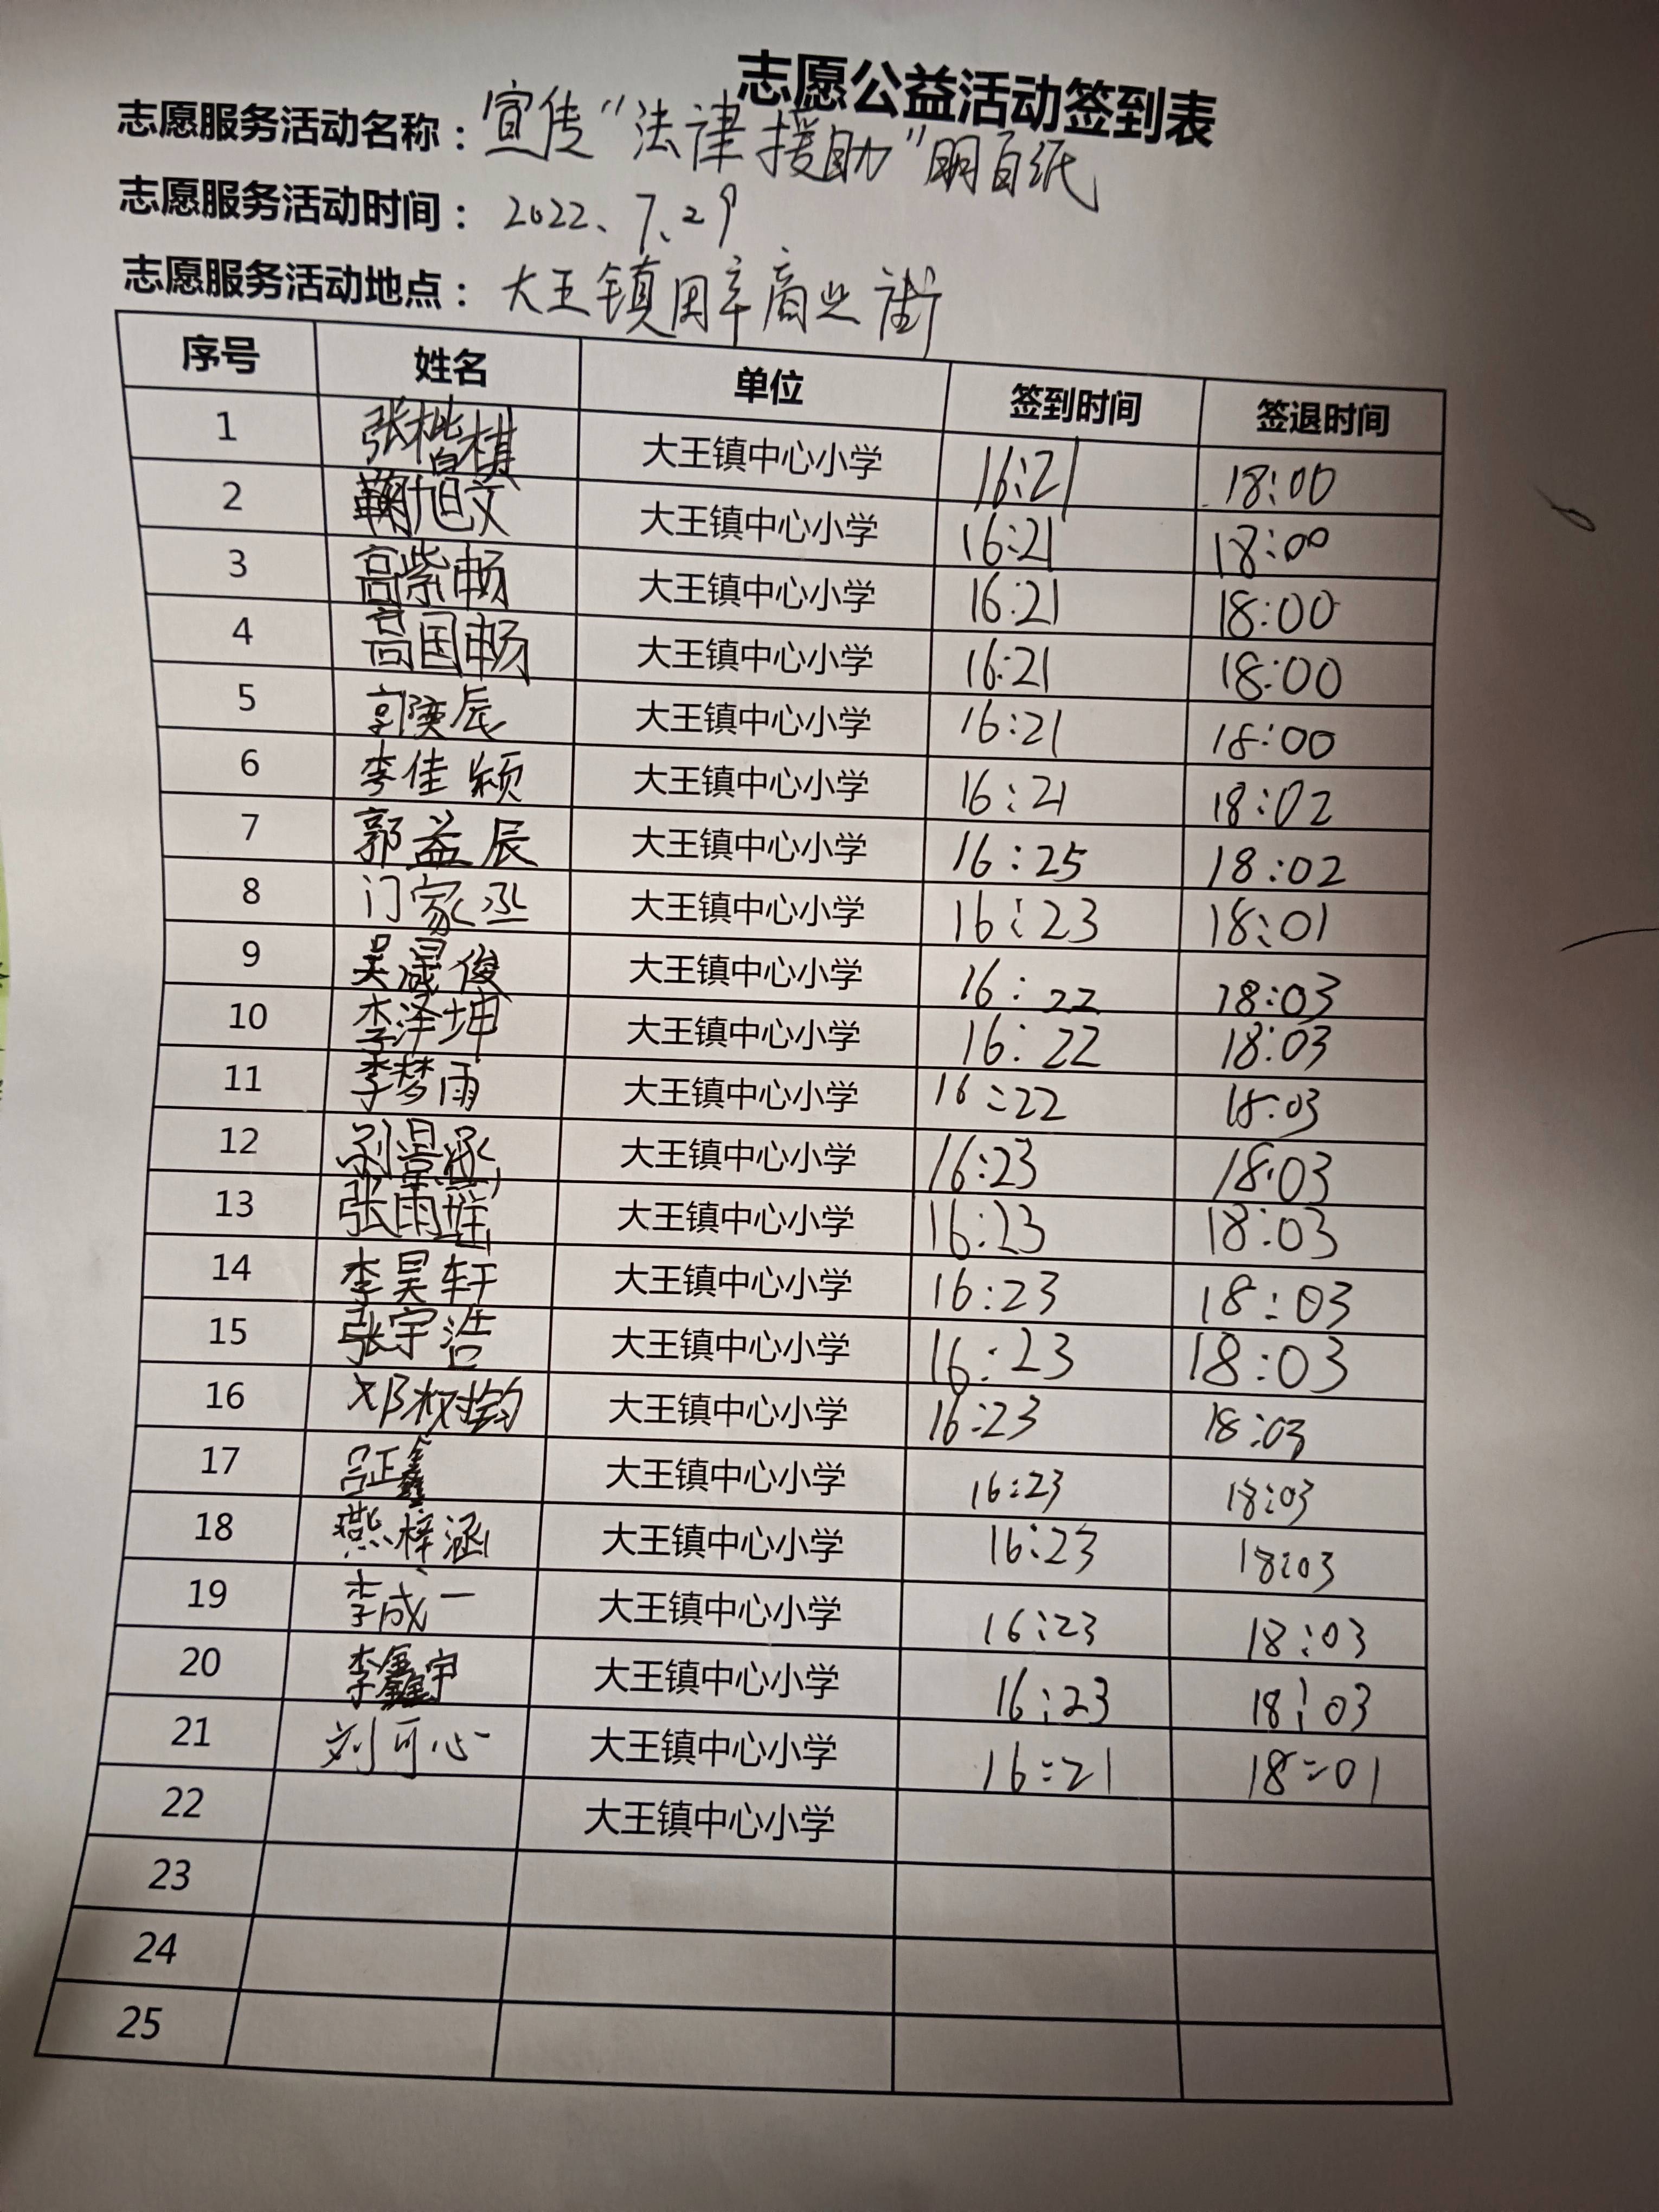 志愿公益活动签到表
志愿服务活动名称：宣传“法律援助”明白纸
志愿服务活动时间：2022、7、29
志愿服务活动地点：大王镇周辛商业街
序号 姓名 单位 签到时间 签退时间
1 张楷棋 大王镇中心小学 16:21 18:00
2 鞠旭文 大王镇中心小学 16:21 18:00
3 高紫畅 大王镇中心小学 16:21 18:00
4 高国畅 大王镇中心小学 16:21 18:00
5 郭奕辰 大王镇中心小学 16:21 18:00
6 李佳颖 大王镇中心小学 16:21 18:02
7 郭益辰 大王镇中心小学 16:25 18:02
8 门家丞 大王镇中心小学 16:23 18:01
9 吴晟俊 大王镇中心小学 16:22 18:03
10 李泽坤 大王镇中心小学 16:22 18:03
11 李梦雨 大王镇中心小学 16:22 18:03
12 刘 大王镇中心小学 16:23 18:03
13 张雨 大王镇中心小学 16:23 18:03
14 李昊轩 大王镇中心小学 16:23 18:03
15 张宇浩 大王镇中心小学 16:23 18:03
16 邓权 大王镇中心小学 16:23 18:03
17 吕正鑫 大王镇中心小学 16:23 18:03
18 燕梓涵 大王镇中心小学 16:23 18:03
19 李成一 大王镇中心小学 16:23 18:03
20 李鑫宇 大王镇中心小学 16:23 18:03
21 刘可心 大王镇中心小学 16:21 18:01
22 大王镇中心小学
23
24
25